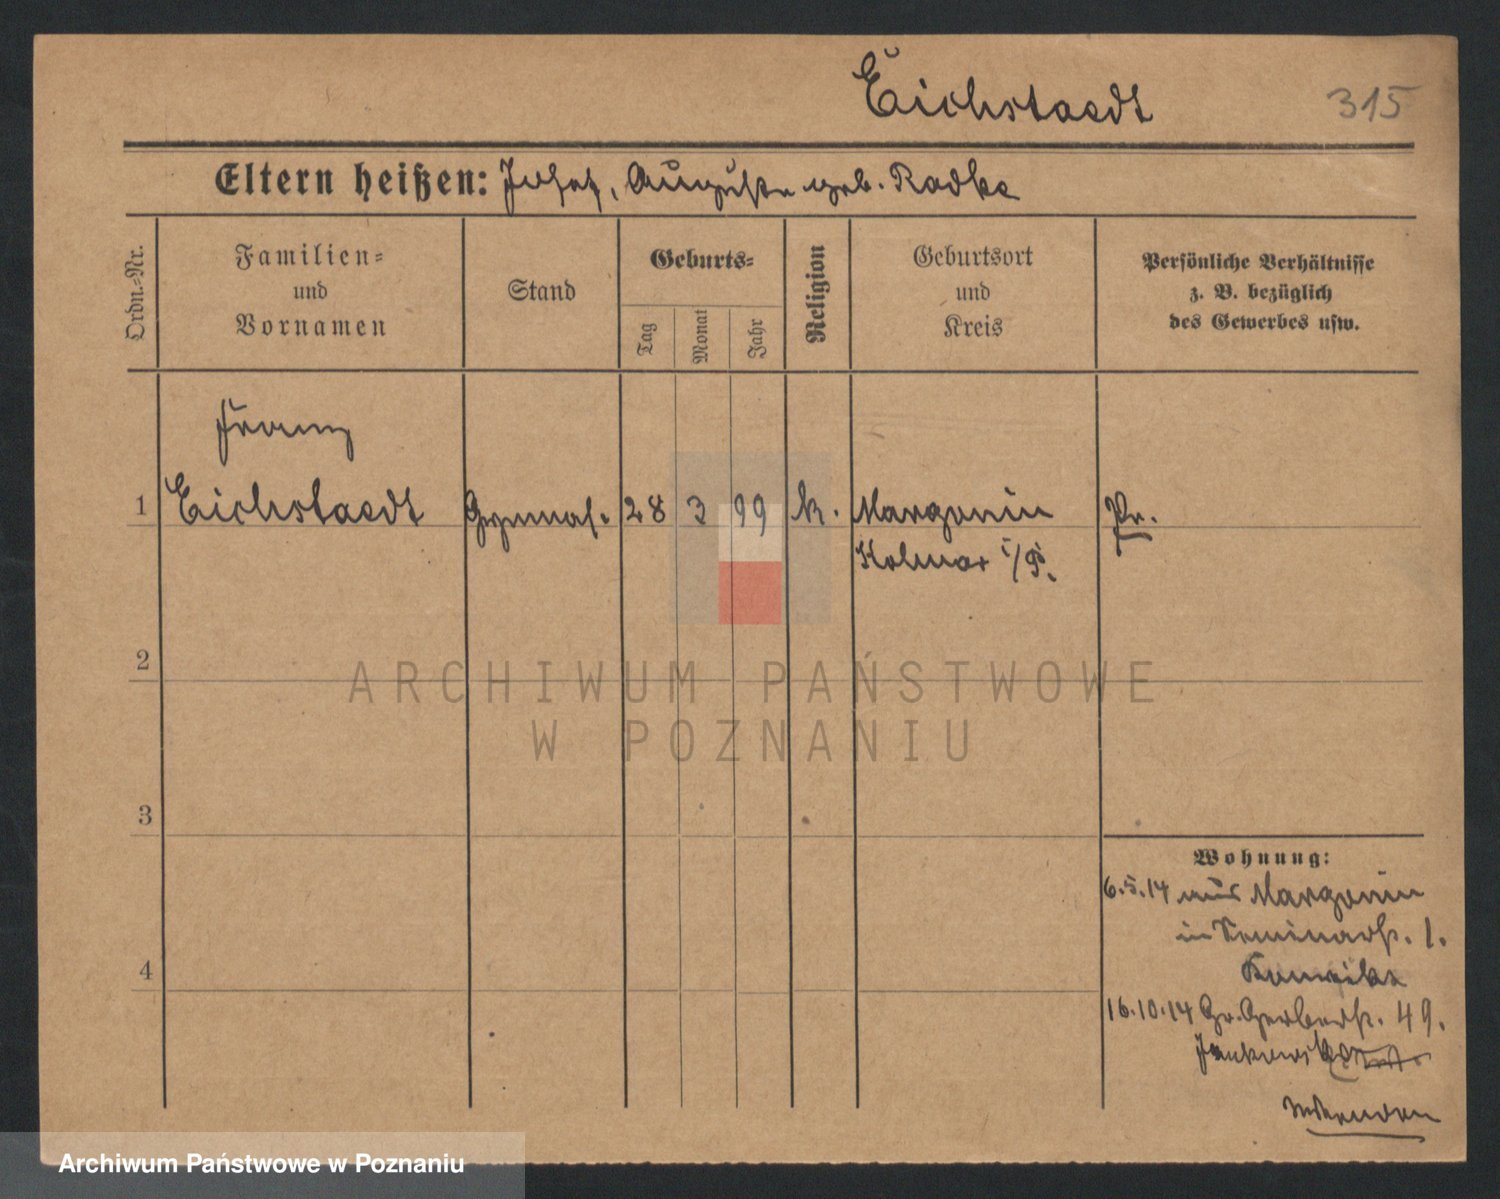 Eichstaedt 315
Eltern heißen: Josef, Auguste geb. Radke
Ordn.-Nr.
Familien-
und
Vornamen
Stand
Geburts-
Tag
Monat
Jahr
Religion
Geburtsort
und
Kreis
Persönliche Verhältnisse
z. B. bezüglich
des Gewerbes usw.
Franz
1 Eichstaedt Gymnas. 28 3 99 k. Margonin Pr.
Kolmar i/P.
2
3
4
Wohnung:
6.5.14 aus Margonin
in Seminarstr. 1.
16.10.14 Gr. Gerberstr. 49.
Jankowski
wenden
ARCHIWUM PAŃSTWOWE
W POZNANIU
Archiwum Państwowe w Poznaniu